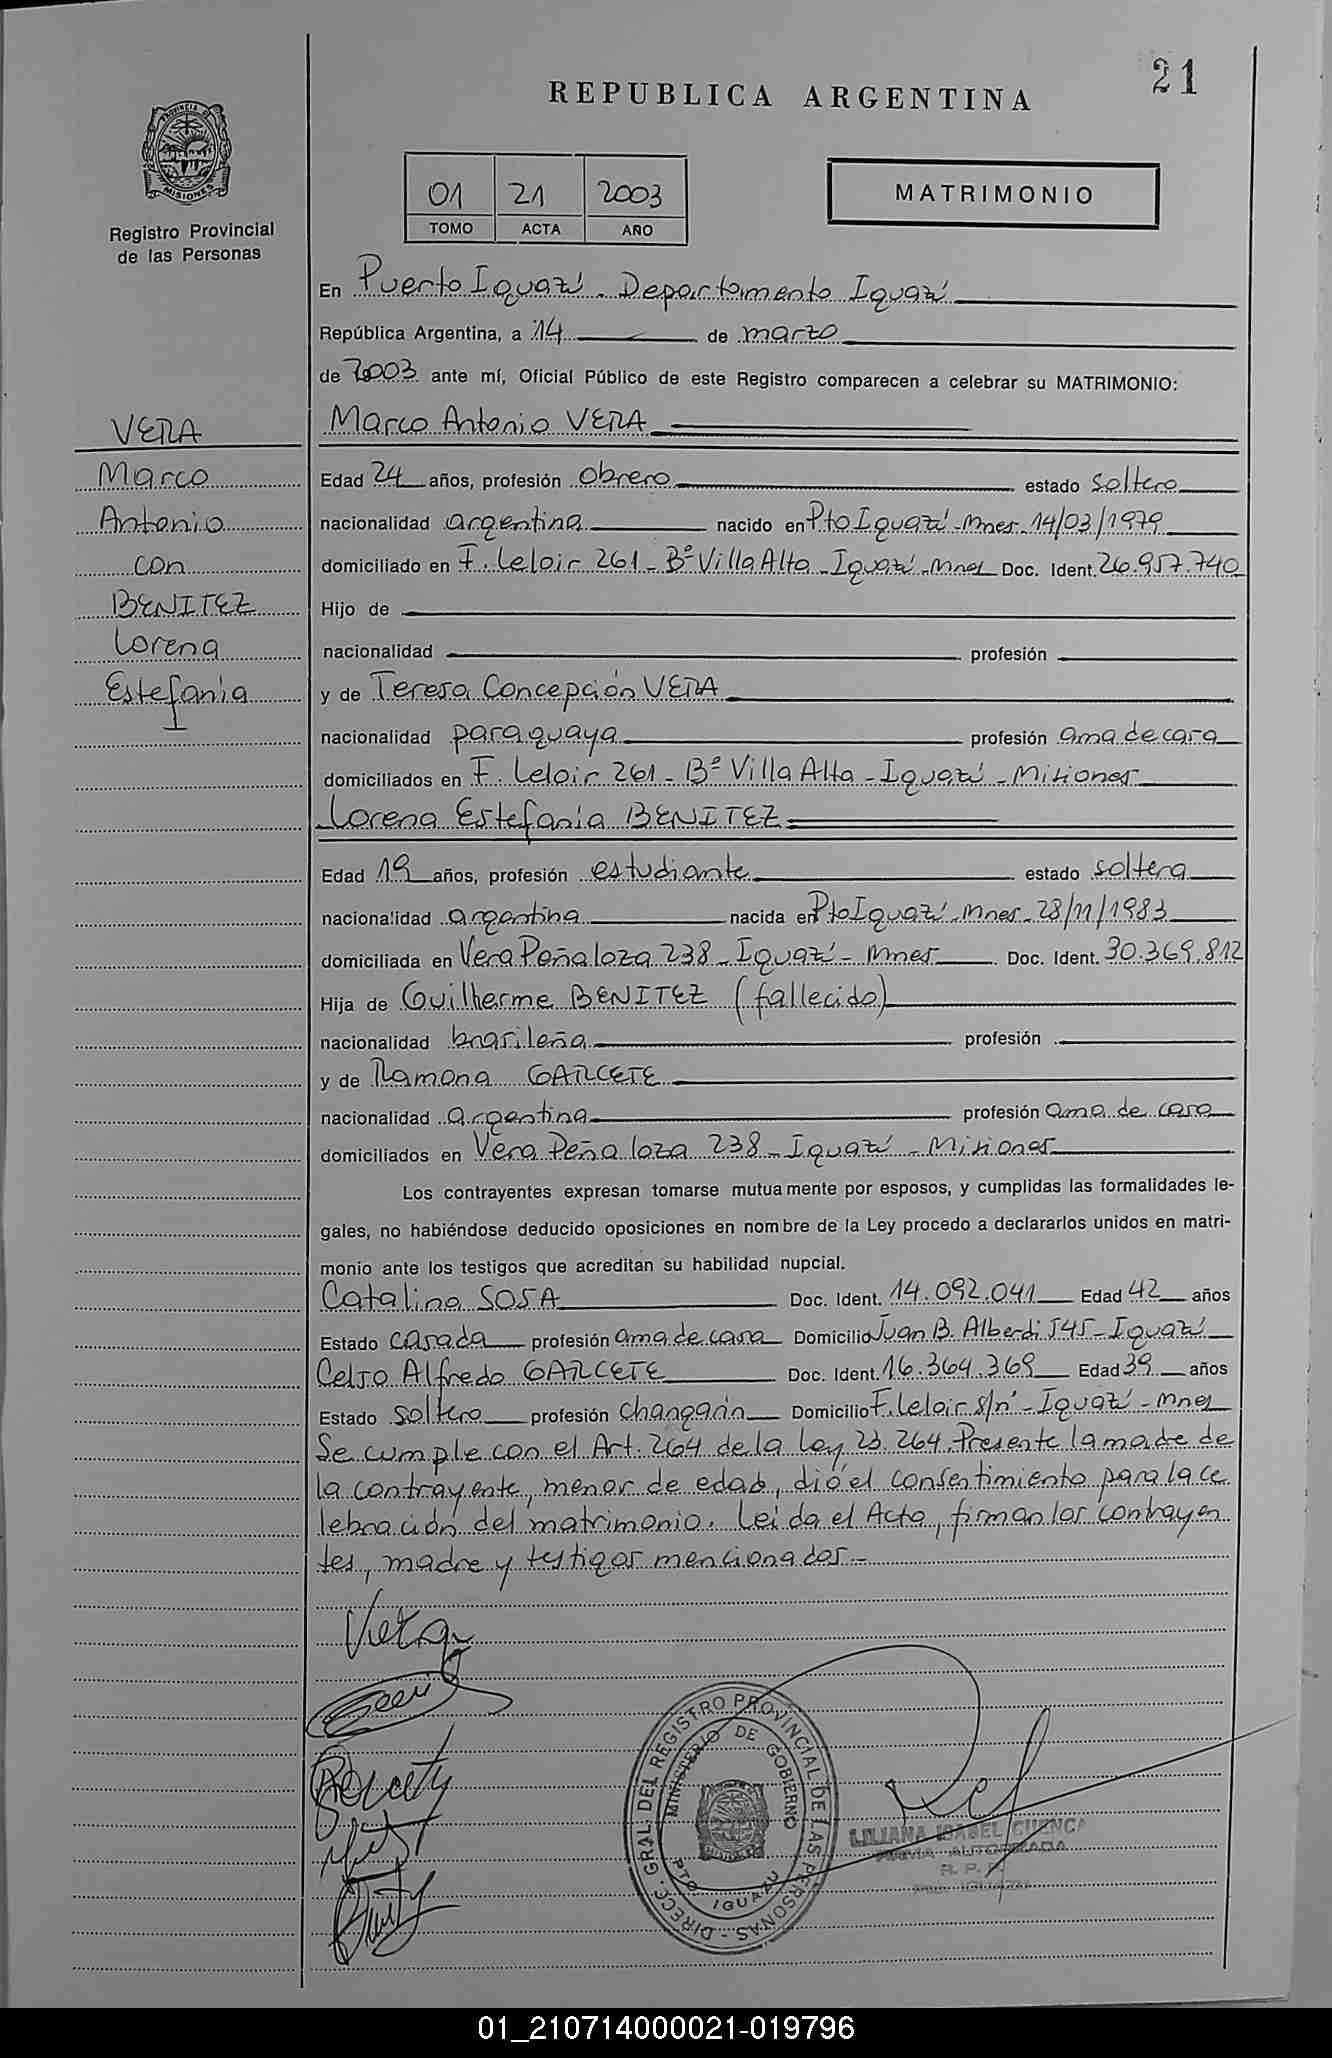 21
REPUBLICA ARGENTINA
PROVINCIA D
MISIONES
Registro Provincial
de las Personas
01 21 2003
TOMO ACTA AÑO
MATRIMONIO
En Puerto Iguazú - Departamento Iguazú
República Argentina, a 14 de marzo
de 2003 ante mí, Oficial Público de este Registro comparecen a celebrar su MATRIMONIO:
VERA
Marco
Antonio
con
BENITEZ
Lorena
Estefanía
Marco Antonio VERA
Edad 24 años, profesión obrero estado soltero
nacionalidad argentina nacido en Pto Iguazú - Mnes - 14/03/1979
domiciliado en F. Leloir 261 - Bº Villa Alta - Iguazú - Mnes Doc. Ident. 26.957.740
Hijo de
nacionalidad profesión
y de Teresa Concepción VERA
nacionalidad paraguaya profesión ama de casa
domiciliados en F. Leloir 261 - Bº Villa Alta - Iguazú - Misiones
Lorena Estefanía BENITEZ
Edad 19 años, profesión estudiante estado soltera
nacionalidad argentina nacida en Pto Iguazú - Mnes - 28/11/1983
domiciliada en Vera Peñaloza 238 - Iguazú - Mnes Doc. Ident. 30.369.812
Hija de Guilherme BENITEZ (fallecido)
nacionalidad brasileña profesión
y de Ramona GARCETE
nacionalidad argentina profesión ama de casa
domiciliados en Vera Peñaloza 238 - Iguazú - Misiones
Los contrayentes expresan tomarse mutuamente por esposos, y cumplidas las formalidades le-
gales, no habiéndose deducido oposiciones en nombre de la Ley procedo a declararlos unidos en matri-
monio ante los testigos que acreditan su habilidad nupcial.
Catalina SOSA Doc. Ident. 14.092.041 Edad 42 años
Estado casada profesión ama de casa Domicilio Juan B. Alberdi 545 - Iguazú
Celso Alfredo GARCETE Doc. Ident. 16.364.369 Edad 39 años
Estado soltero profesión changarín Domicilio F. Leloir s/nº - Iguazú - Mnes
Se cumple con el Art. 264 de la Ley 23.264. Presente la madre de
la contrayente, menor de edad, dió el consentimiento para la ce
lebración del matrimonio. Leída el Acta, firman los contrayen
tes, madre y testigos mencionados.-
DIRECC. GRAL. DEL REGISTRO PROVINCIAL DE LAS PERSONAS -
MINISTERIO DE GOBIERNO
PTO. IGUAZU
LILIANA ISABEL CUENCA
FIRMA AUTORIZADA
R. P. P.
01_210714000021-019796